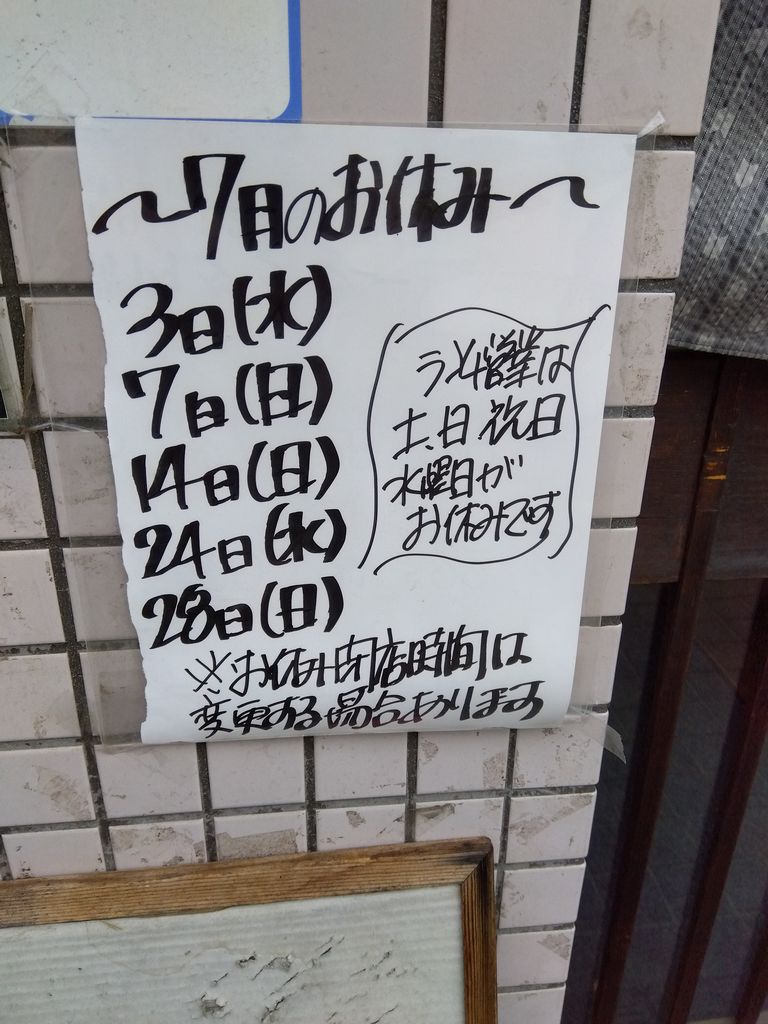 ～7月のお休み～
3日(水)
7日(日)
14日(日)
24日(水)
28日(日)
ランチ営業は
土、日 祝日
水曜日が
お休みです
※お休み閉店時間は
変更する場合あります